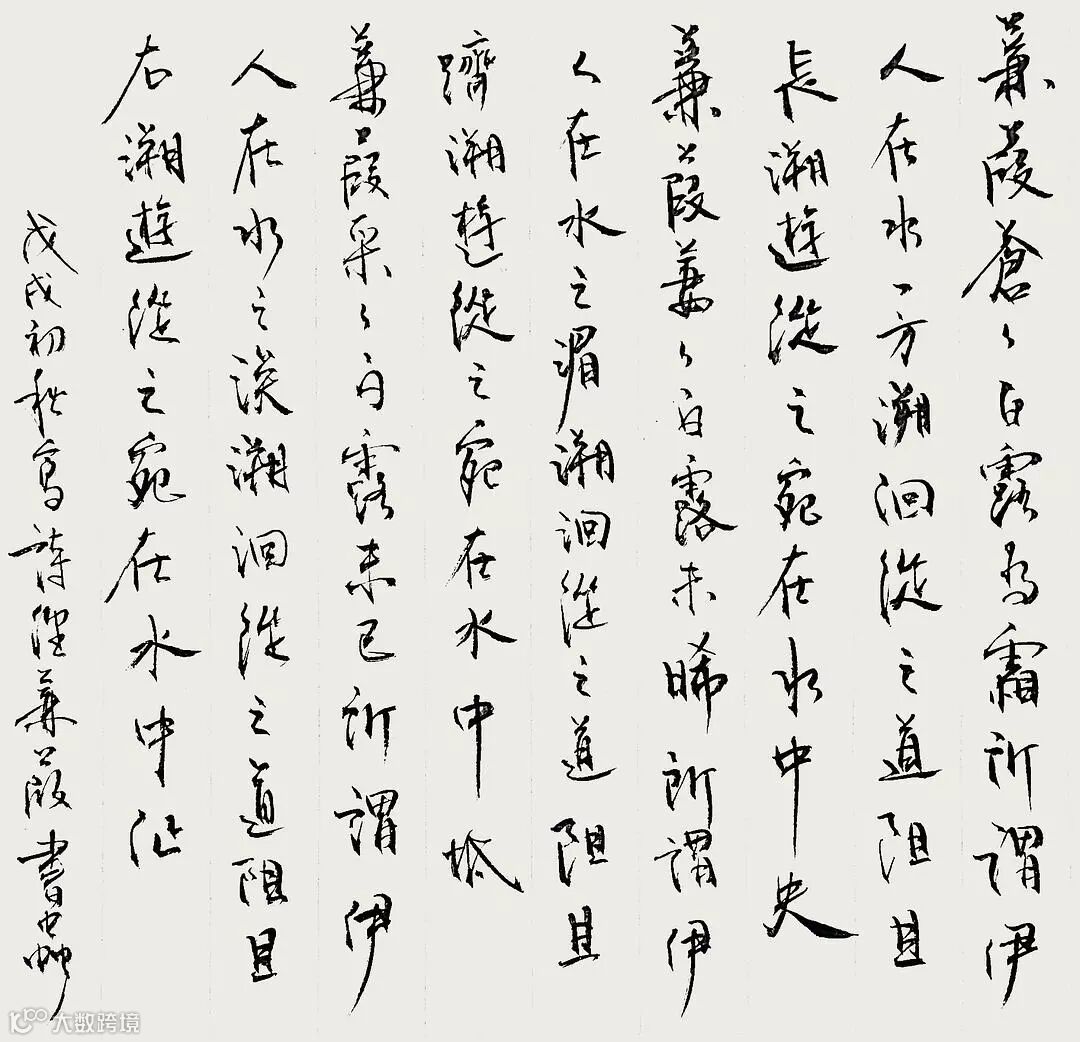 蒹葭蒼〻白露为霜所謂伊
人在水一方溯洄從之道阻且
長溯遊從之宛在水中央
蒹葭萋〻白露未晞所謂伊
人在水之湄溯洄從之道阻且
躋溯遊從之宛在水中坻
蒹葭采〻白露未已所謂伊
人在水之涘溯洄從之道阻且
右溯遊從之宛在水中沚
戊戌初秋寫詩經蒹葭書
大数跨境